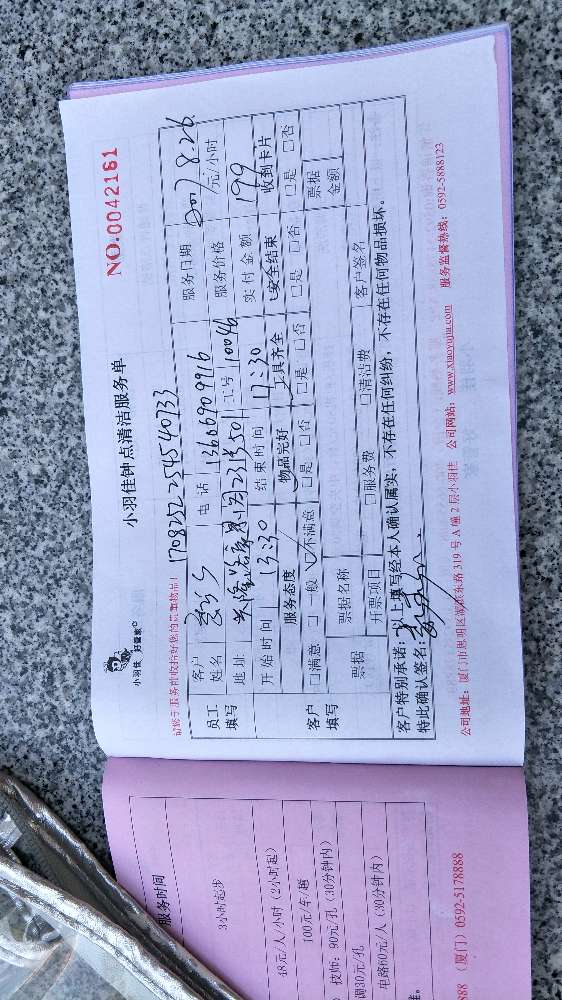 NO.0042161
小羽佳钟点清洁服务单
小羽佳 好管家
170825225454033
员工填写
客户姓名
电话 13616909916
服务日期 2017 8.26
地址
工号 10046
服务价格 元/小时
开始时间 13:30
结束时间 17:30
实付金额 199
客户填写
服务态度
物品完好
工具齐全
安全结束
收到卡片
□满意 □一般 □不满意
□是 □否
□是 □否
□是 □否
□是 □否
票据
票据名称
票据金额
开票项目
□服务费 □清洁费
客户签名
客户特别承诺:以上填写经本人确认属实,不存在任何纠纷,不存在任何物品损坏。
特此确认签名:
公司地址:厦门市思明区湖滨东路 319 号 A 幢 2 层小羽佳 公司网站:www.xiaoyujia.com 服务监督热线:0592-5888123
服务时间
3小时起步
48元/人/小时(2小时起)
100元/车/趟
技师:90元/孔(30分钟内)
调30元/孔
电路60元/人(30分钟内)
888 (厦门) 0592-5178888